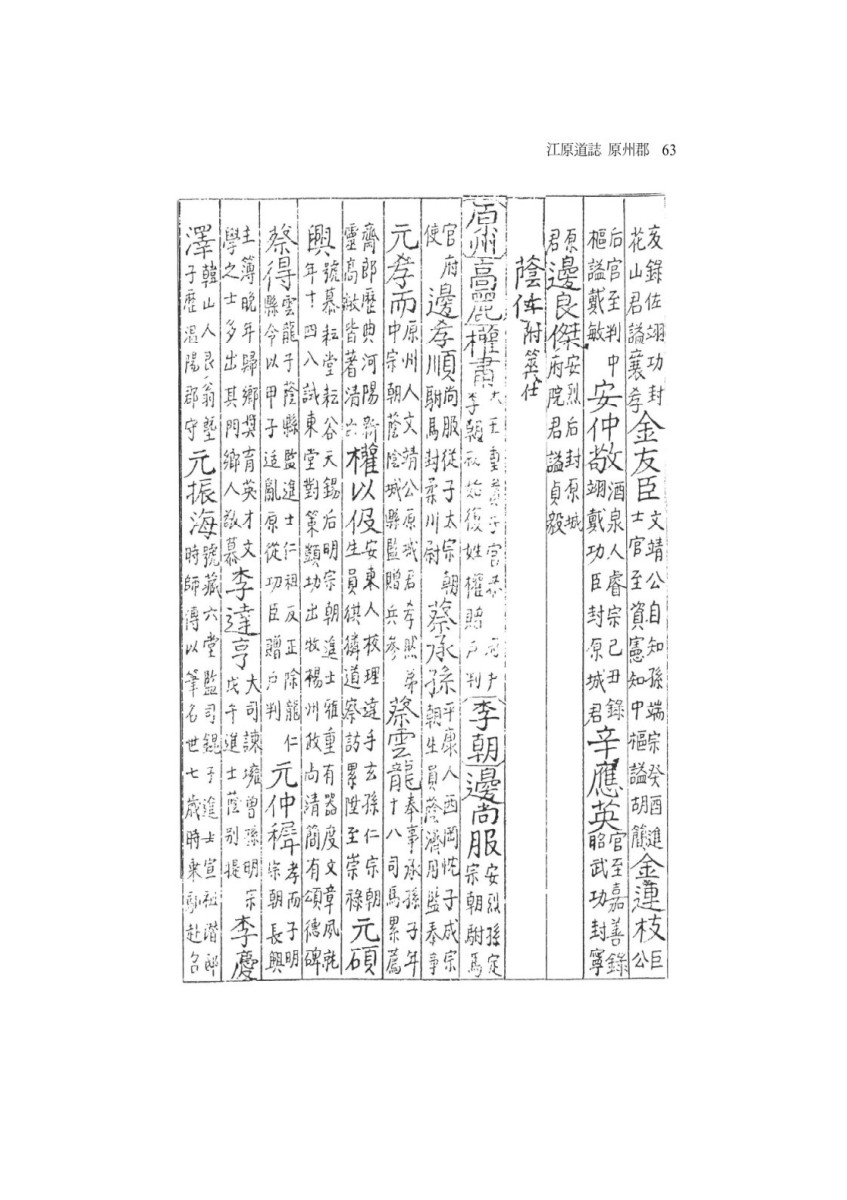 江原道誌 原州郡 63
友錄佐翊功封花山君謚襄孝 金友臣 文靖公自知孫端宗癸酉進士官至資憲知中樞謚胡簡 金蓮枝 臣公
后官至判中樞謚戴敏 安仲敬 酒泉人睿宗己丑錄翊戴功臣封原城君 辛應英 官至嘉善錄昭武功封寧
原君 邊良傑 安烈后封原城府院君謚貞毅
蔭仕 附筮仕
原州 高麗 權肅 李朝 始復姓權贈戶判 李朝 邊尚服 安烈孫定宗朝駙馬
官府使 邊孝順 尚服從子太宗朝駙馬封柔川尉 蔡承孫 平康人西岡忱子成宗朝生員蔭濟用監奉事
元孝而 原州人文靖公原城君孝然弟中宗朝蔭陰城縣監贈兵參 蔡雲龍 奉事承孫子年十八司馬累薦
齋郎歷典河陽新靈高敞皆著清 權以伋 安東人校理達手玄孫仁宗朝生員供獜道察訪累陞至崇祿 元碩
興 號慕耘堂耘谷天錫后明宗朝進士雅重有器度文章夙就年十四入試東堂對策顯功出牧楊州政尚清簡有頌德碑
蔡得 雲龍子蔭縣監進士仁祖反正除龍仁縣令以甲子适亂原從功臣贈戶判 元仲穉 孝而子明宗朝長興
主簿晚年歸鄉奬育英才文學之士多出其門鄉人敬慕 李達亨 大司諫壅曾孫明宗戊午進士蔭別提 李慶
澤 韓山人艮翁塾子歷溫陽郡守 元振海 號藏六堂監司錕子進士宣祖潛邸時師傅以筆名世七歲時乘驢赴召